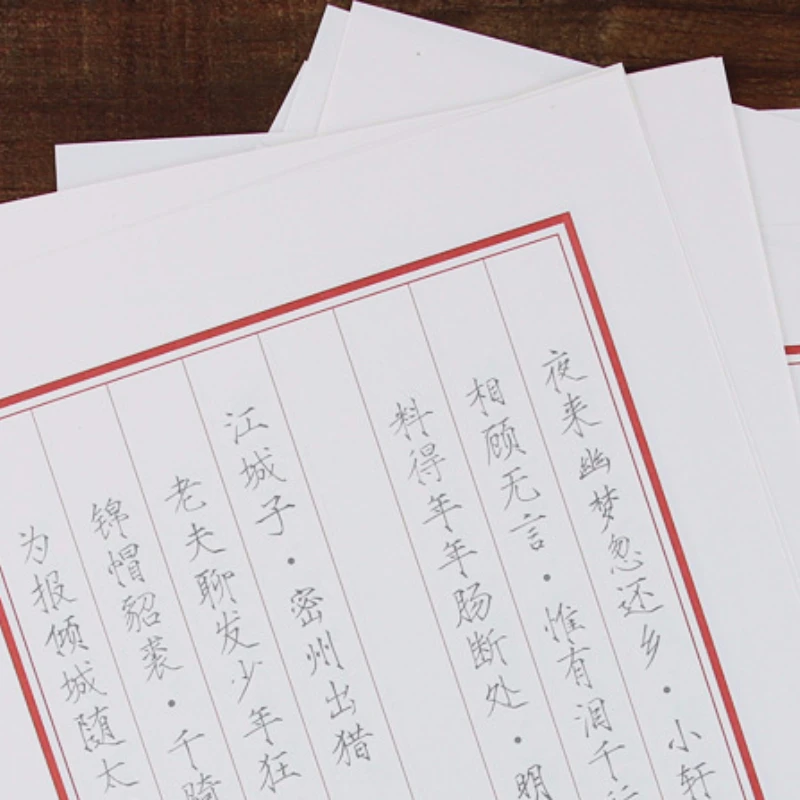 夜来幽梦忽还乡·小轩
相顾无言·惟有泪千行
料得年年肠断处·明
江城子·密州出猎
老夫聊发少年狂
锦帽貂裘·千骑
为报倾城随太